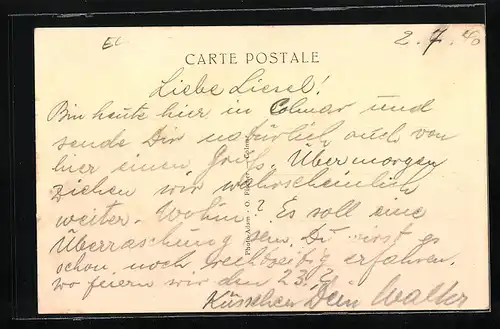 EL
2.7.40
CARTE POSTALE
Liebe Liesel!
Bin heute hier in Colmar und
sende Dir natürlich auch von
hier einen Gruß. Übermorgen
ziehen wir wahrscheinlich
weiter. Wohin? Es soll eine
Überraschung sein. Du wirst es
schon noch rechtzeitig erfahren,
wo feiern wir den 23.?
Küsschen Dein Walter
Photo Adam - O.